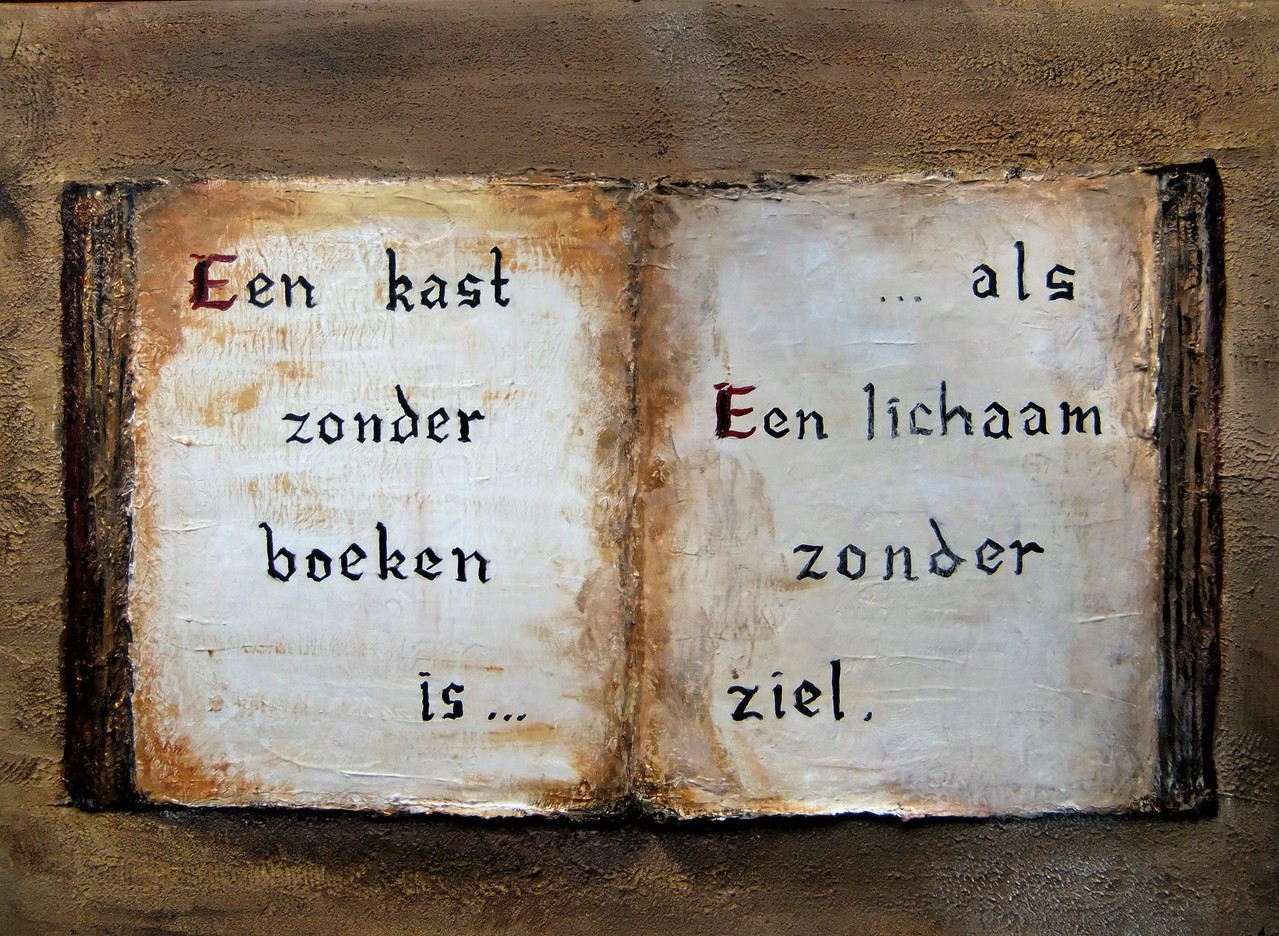 Een kast
zonder
boeken
is...
... als
Een lichaam
zonder
ziel.